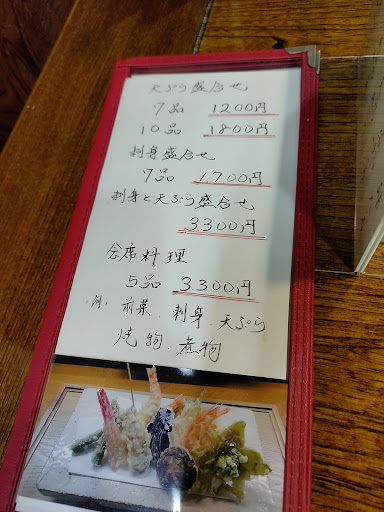 天ぷら盛合せ
7品 1200円
10品 1800円
刺身盛合せ
7品 1700円
刺身と天ぷら盛合せ
3300円
会席料理
5品 3300円
例. 前菜. 刺身. 天ぷら
焼物. 煮物